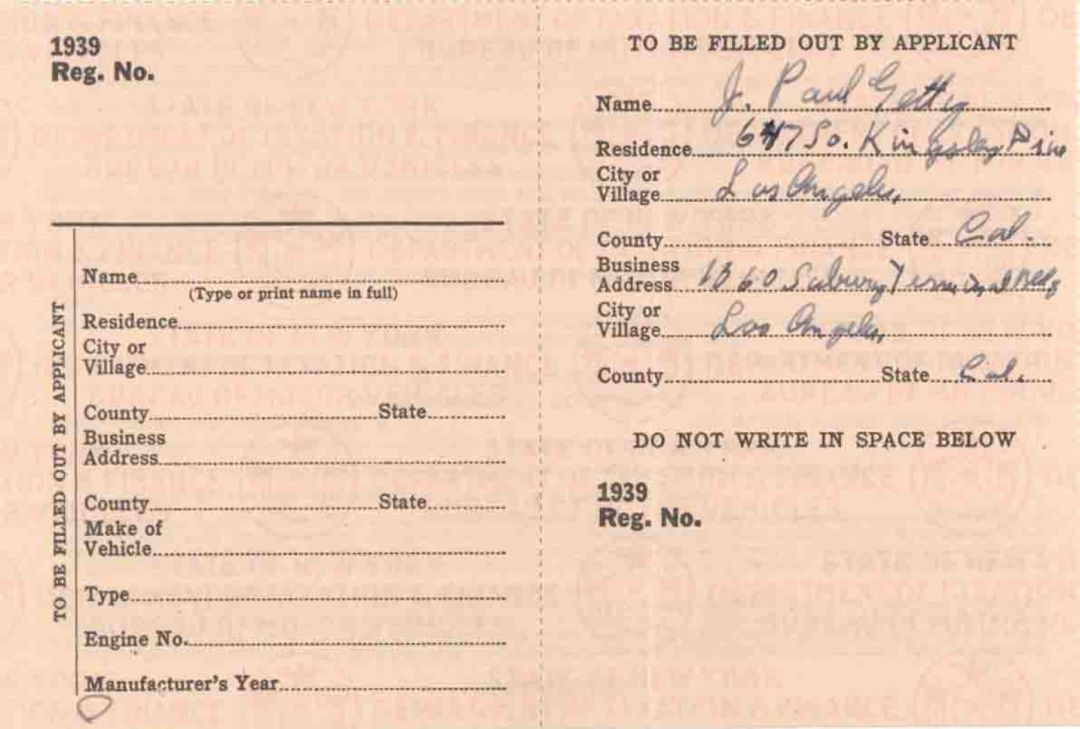 1939
Reg. No.
TO BE FILLED OUT BY APPLICANT
Name
(Type or print name in full)
Residence
City or
Village
County State
Business
Address
County State
Make of
Vehicle
Type
Engine No.
Manufacturer's Year
TO BE FILLED OUT BY APPLICANT
Name J. Paul Getty
Residence So. Kingsley
City or
Village Los Angeles,
County State Cal.
Business
Address Subway Terminal Bldg
City or
Village Los Angeles,
County State Cal.
DO NOT WRITE IN SPACE BELOW
1939
Reg. No.